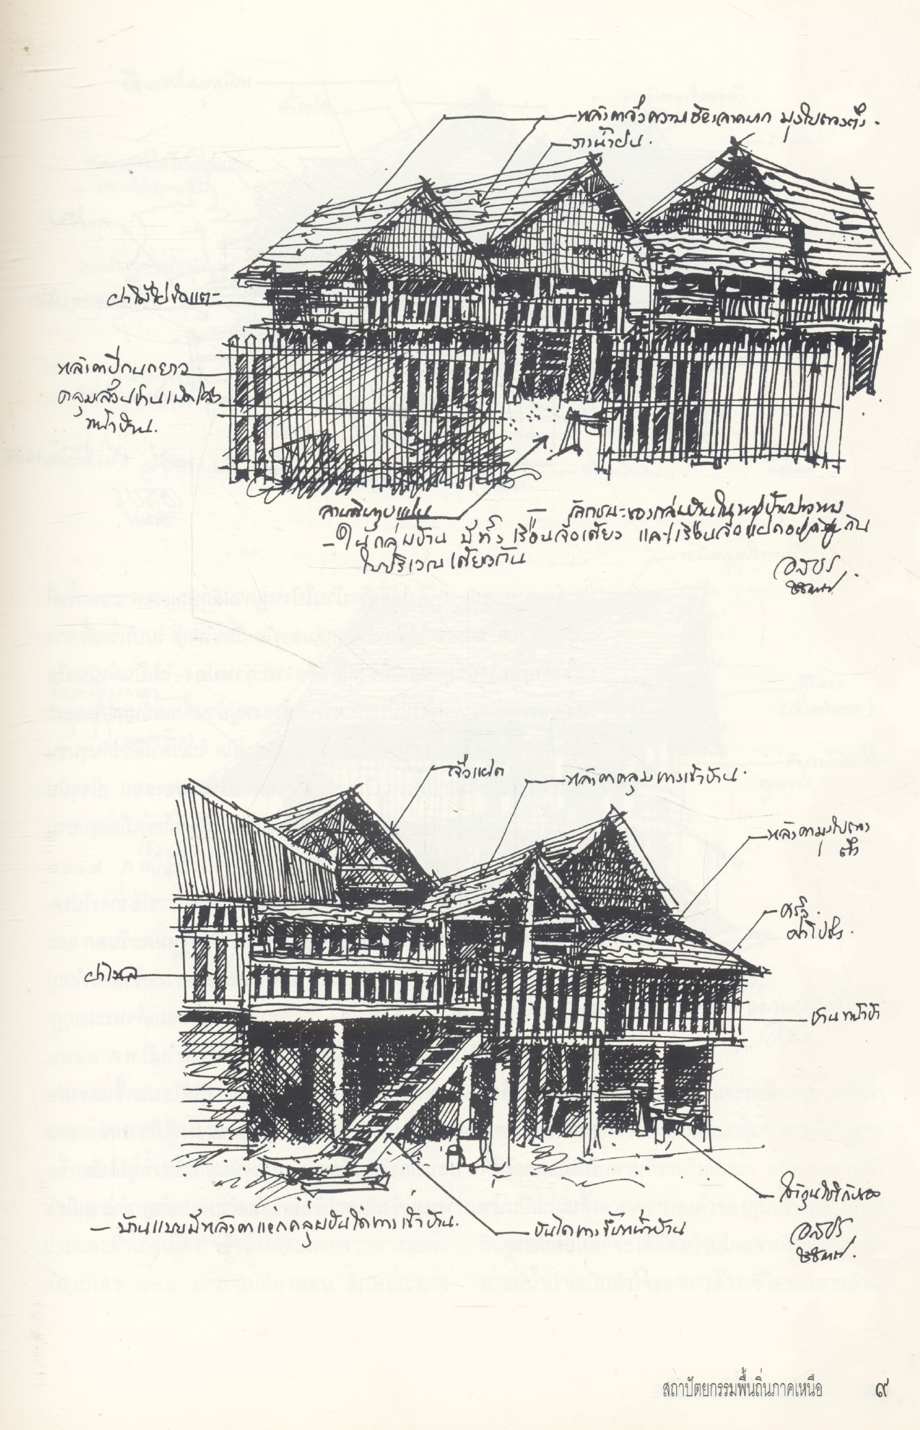 หลังคาจั่วความชันลาดมาก มุงใบตองตึง.
กาน้ำฝน.
ฝาไม้ไผ่ขัดแตะ
หลังคาปีกนกยาว
คลุมส่วนชานเปิดโล่ง
หน้าบ้าน.
ลานดินทุบแน่น
— ลักษณะของกลุ่มบ้านในหมู่บ้าน
– ในกลุ่มบ้าน มีทั้งเรือนจั่วเดี่ยว และเรือนจั่วแฝดอยู่ด้วยกัน
ในบริเวณเดียวกัน
จั่วแฝด
หลังคาคลุมทางเข้าบ้าน.
หลังคามุงใบตอง
ตึง
ครัว.
ฝาโปร่ง.
ฝาไหล
ชานหน้าบ้
ใต้ถุนใช้เก็บของ
– บ้านแบบมีหลังคาแยกคลุมบันไดทางเข้าบ้าน.
บันไดทางขึ้นหน้าบ้าน
สถาปัตยกรรมพื้นถิ่นภาคเหนือ ๙